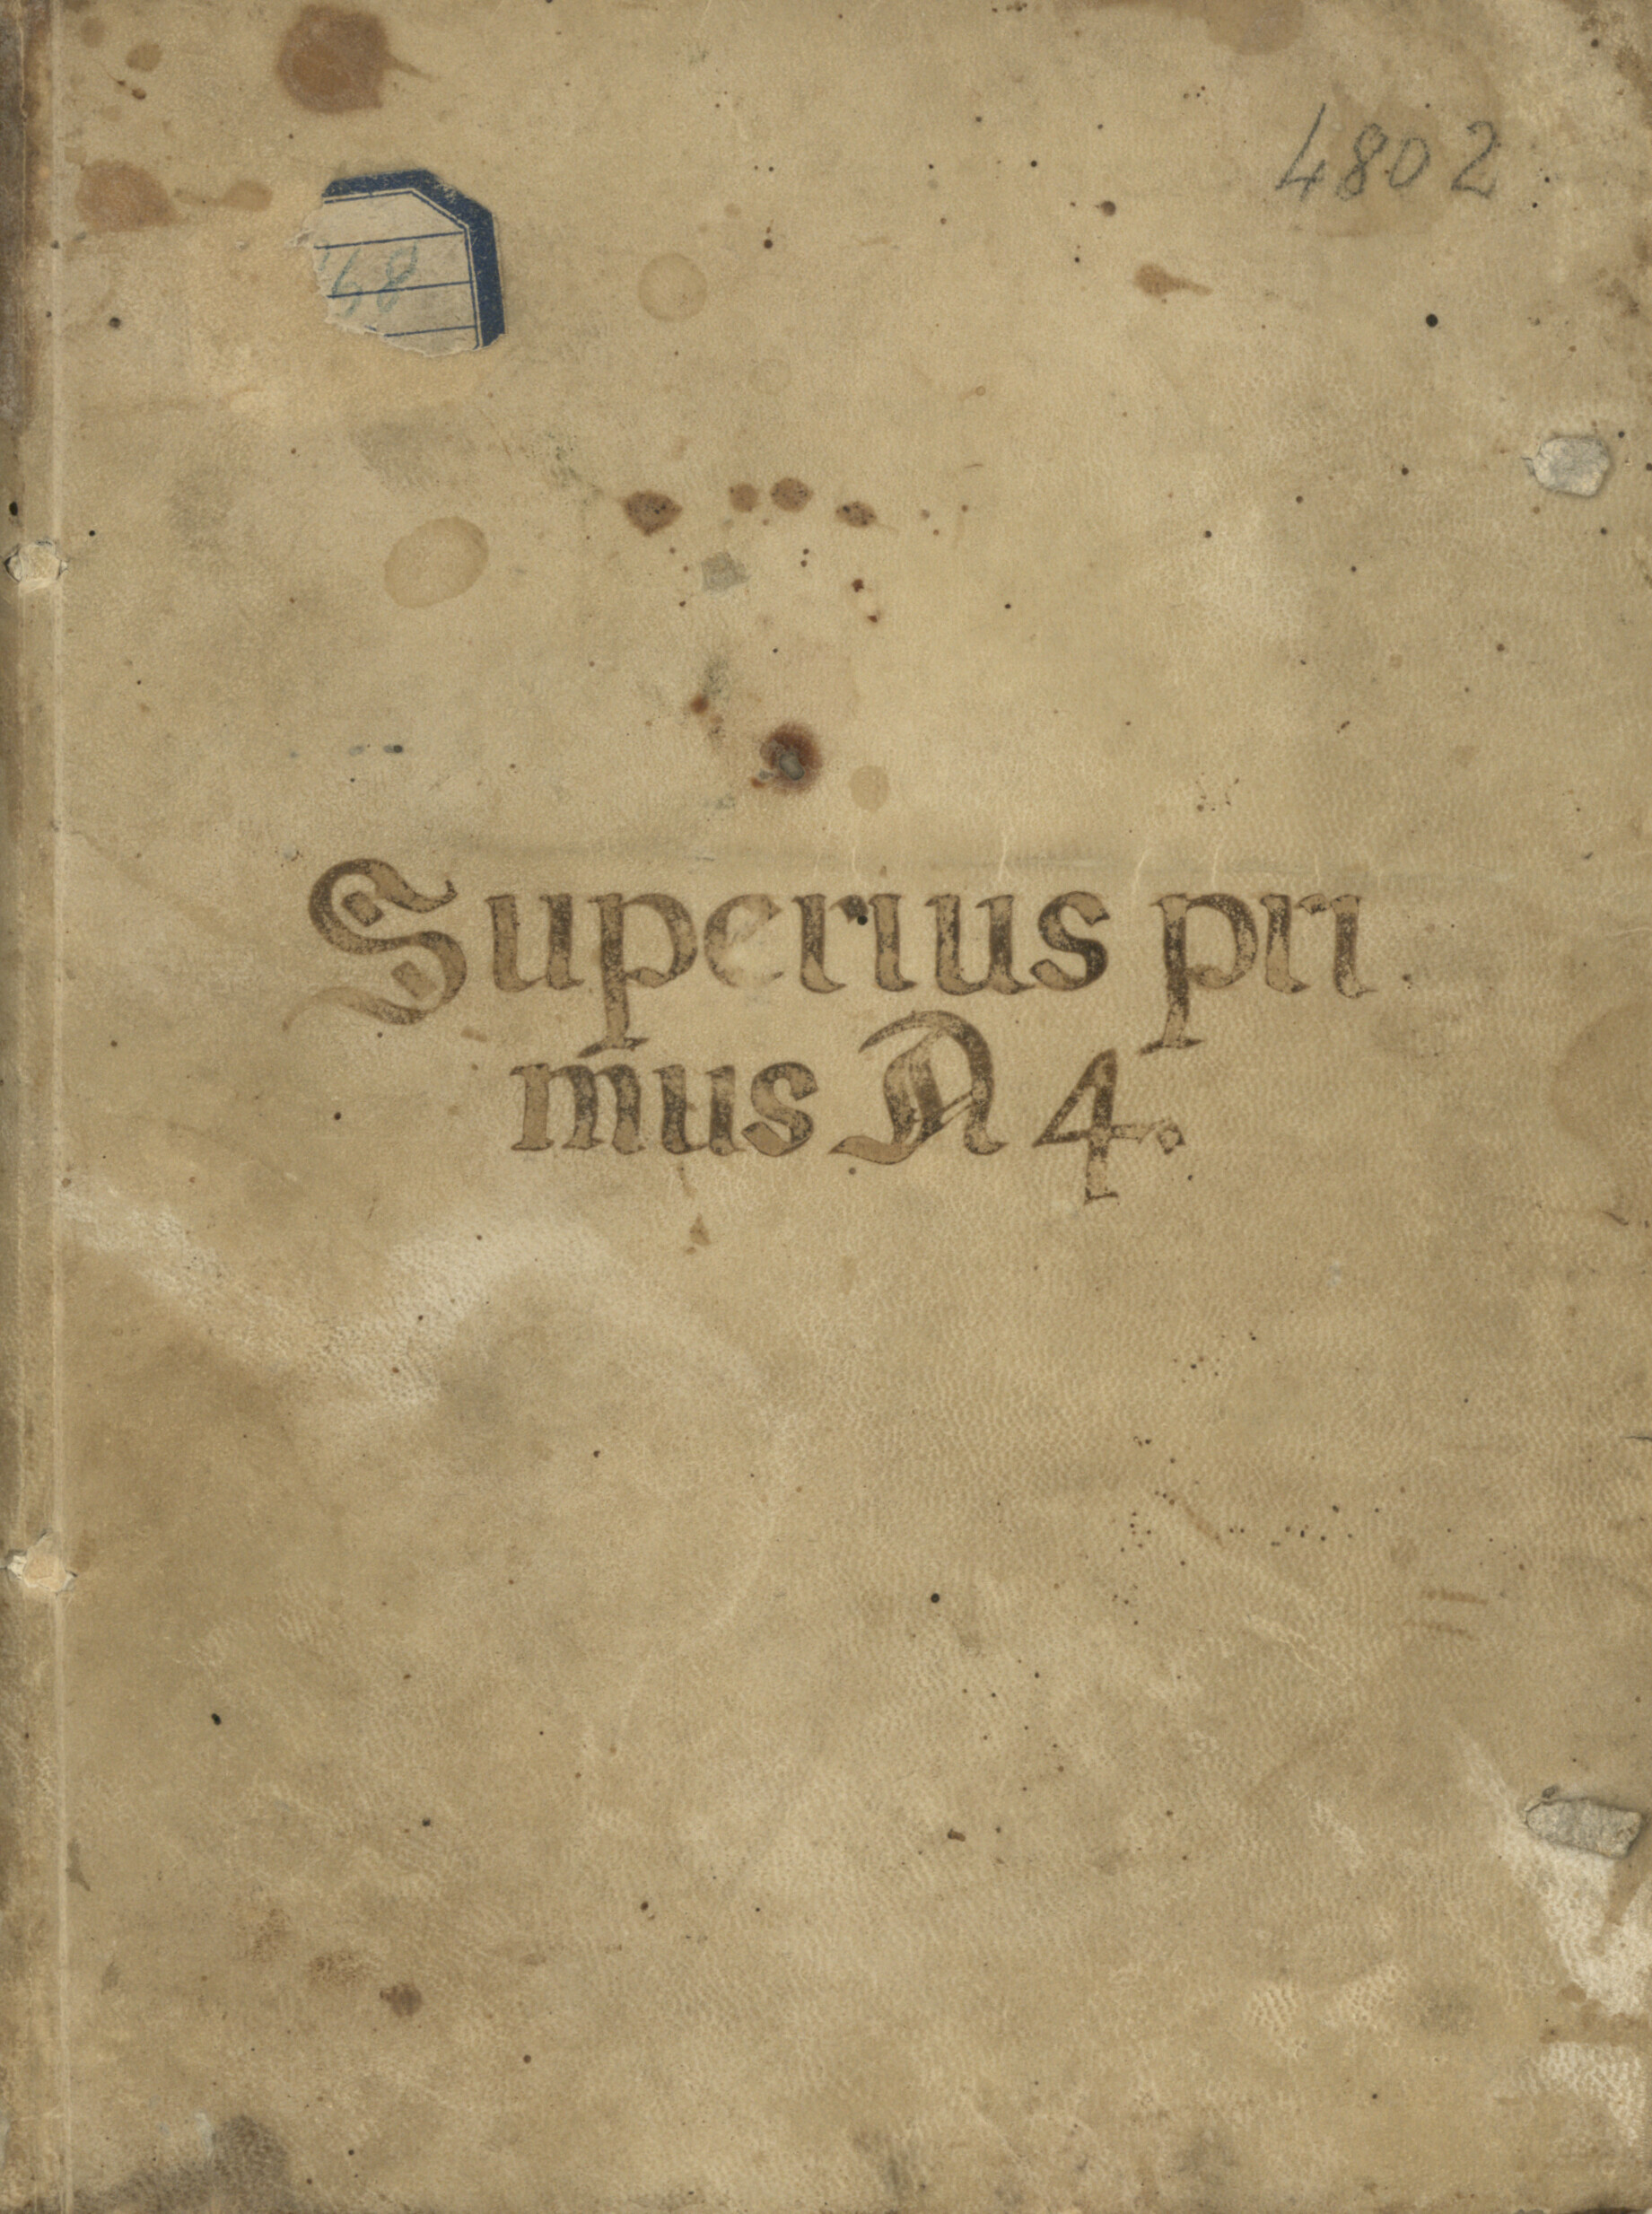 4802
Superius pri
mus A 4.